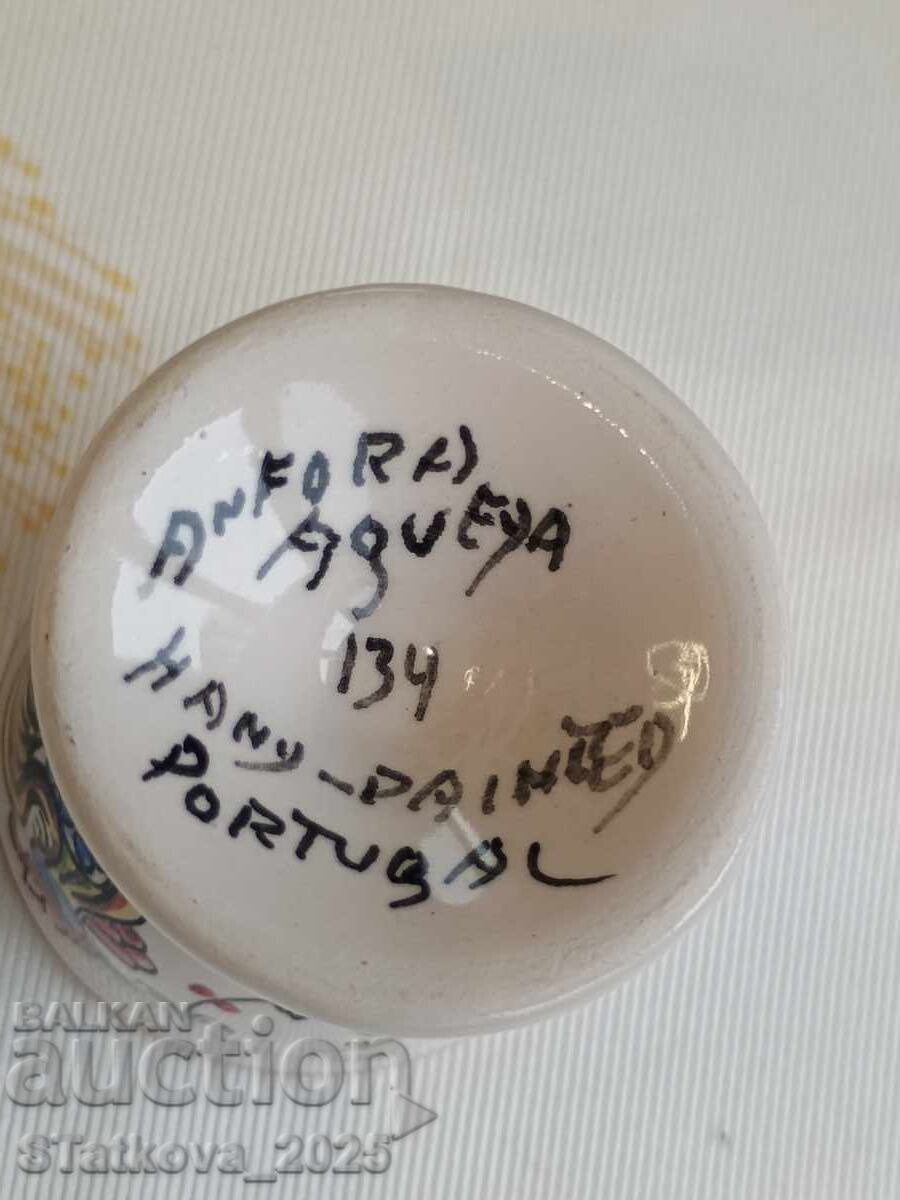 ANFORA
AGUEDA
134
HAND-PAINTED
PORTUGAL
BALKAN
auction
STatkova_2025